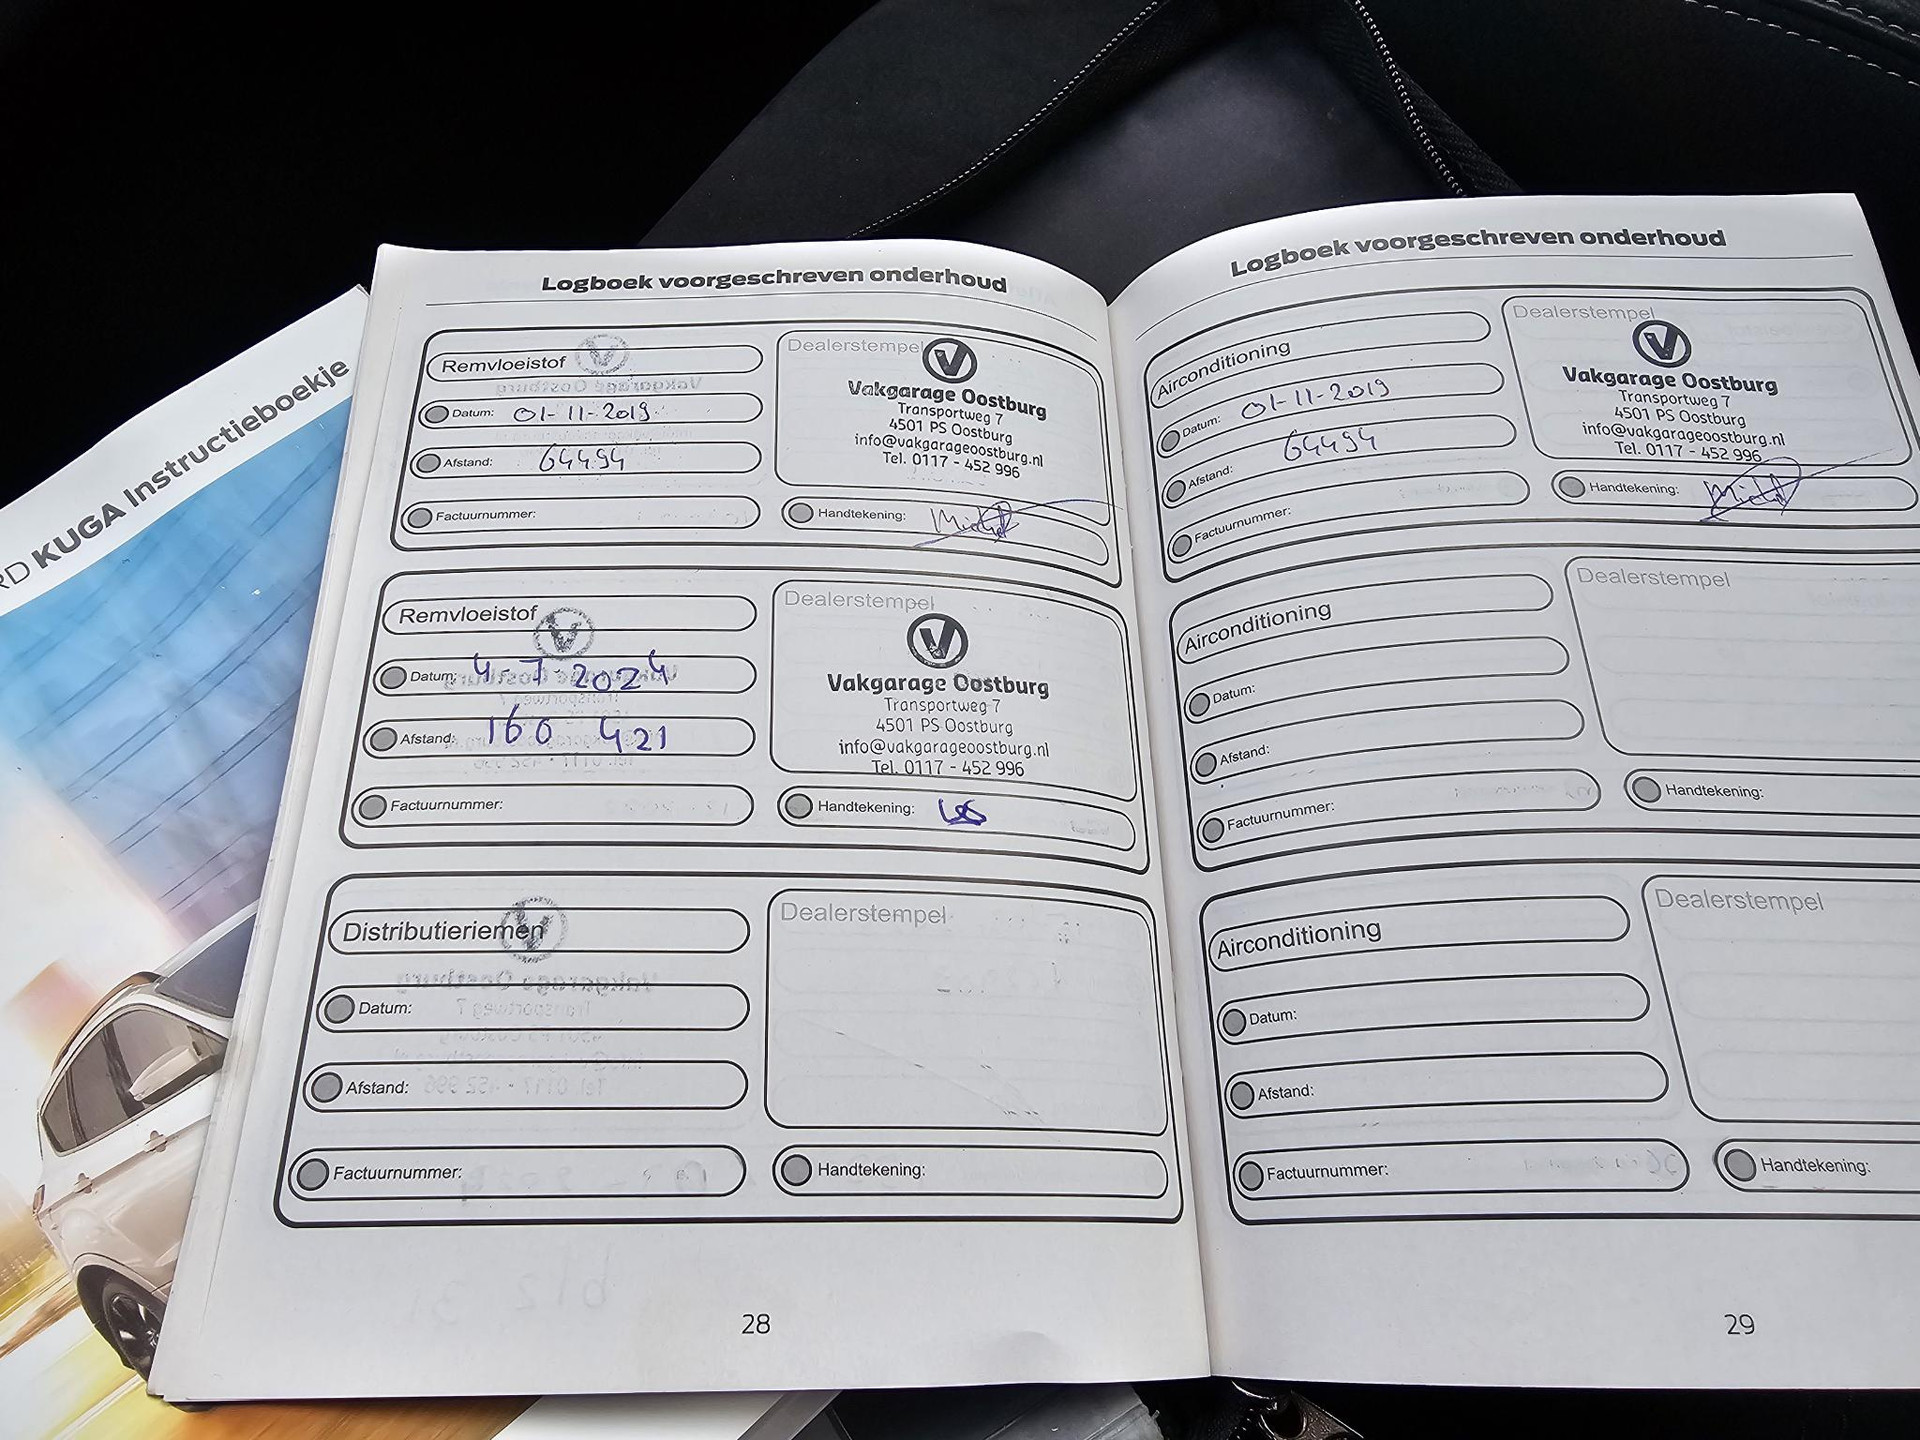 KUGA Instructieboekje
Logboek voorgeschreven onderhoud
Remvloeistof
Datum: 01-11-2019
Afstand: 64494
Factuurnummer:
Dealerstempel
V
Vakgarage Oostburg
Transportweg 7
4501 PS Oostburg
info@vakgarageoostburg.nl
Tel. 0117 - 452 996
Handtekening:
Remvloeistof
Datum: 4-7 2024
Afstand: 160 421
Factuurnummer:
Dealerstempel
V
Vakgarage Oostburg
Transportweg 7
4501 PS Oostburg
info@vakgarageoostburg.nl
Tel. 0117 - 452 996
Handtekening:
Distributieriemen
Datum:
Afstand:
Factuurnummer:
Dealerstempel
Handtekening:
28
Logboek voorgeschreven onderhoud
Airconditioning
Datum: 01-11-2019
Afstand: 64494
Factuurnummer:
Dealerstempel
V
Vakgarage Oostburg
Transportweg 7
4501 PS Oostburg
info@vakgarageoostburg.nl
Tel. 0117 - 452 996
Handtekening:
Airconditioning
Datum:
Afstand:
Factuurnummer:
Dealerstempel
Handtekening:
Airconditioning
Datum:
Afstand:
Factuurnummer:
Dealerstempel
Handtekening:
29